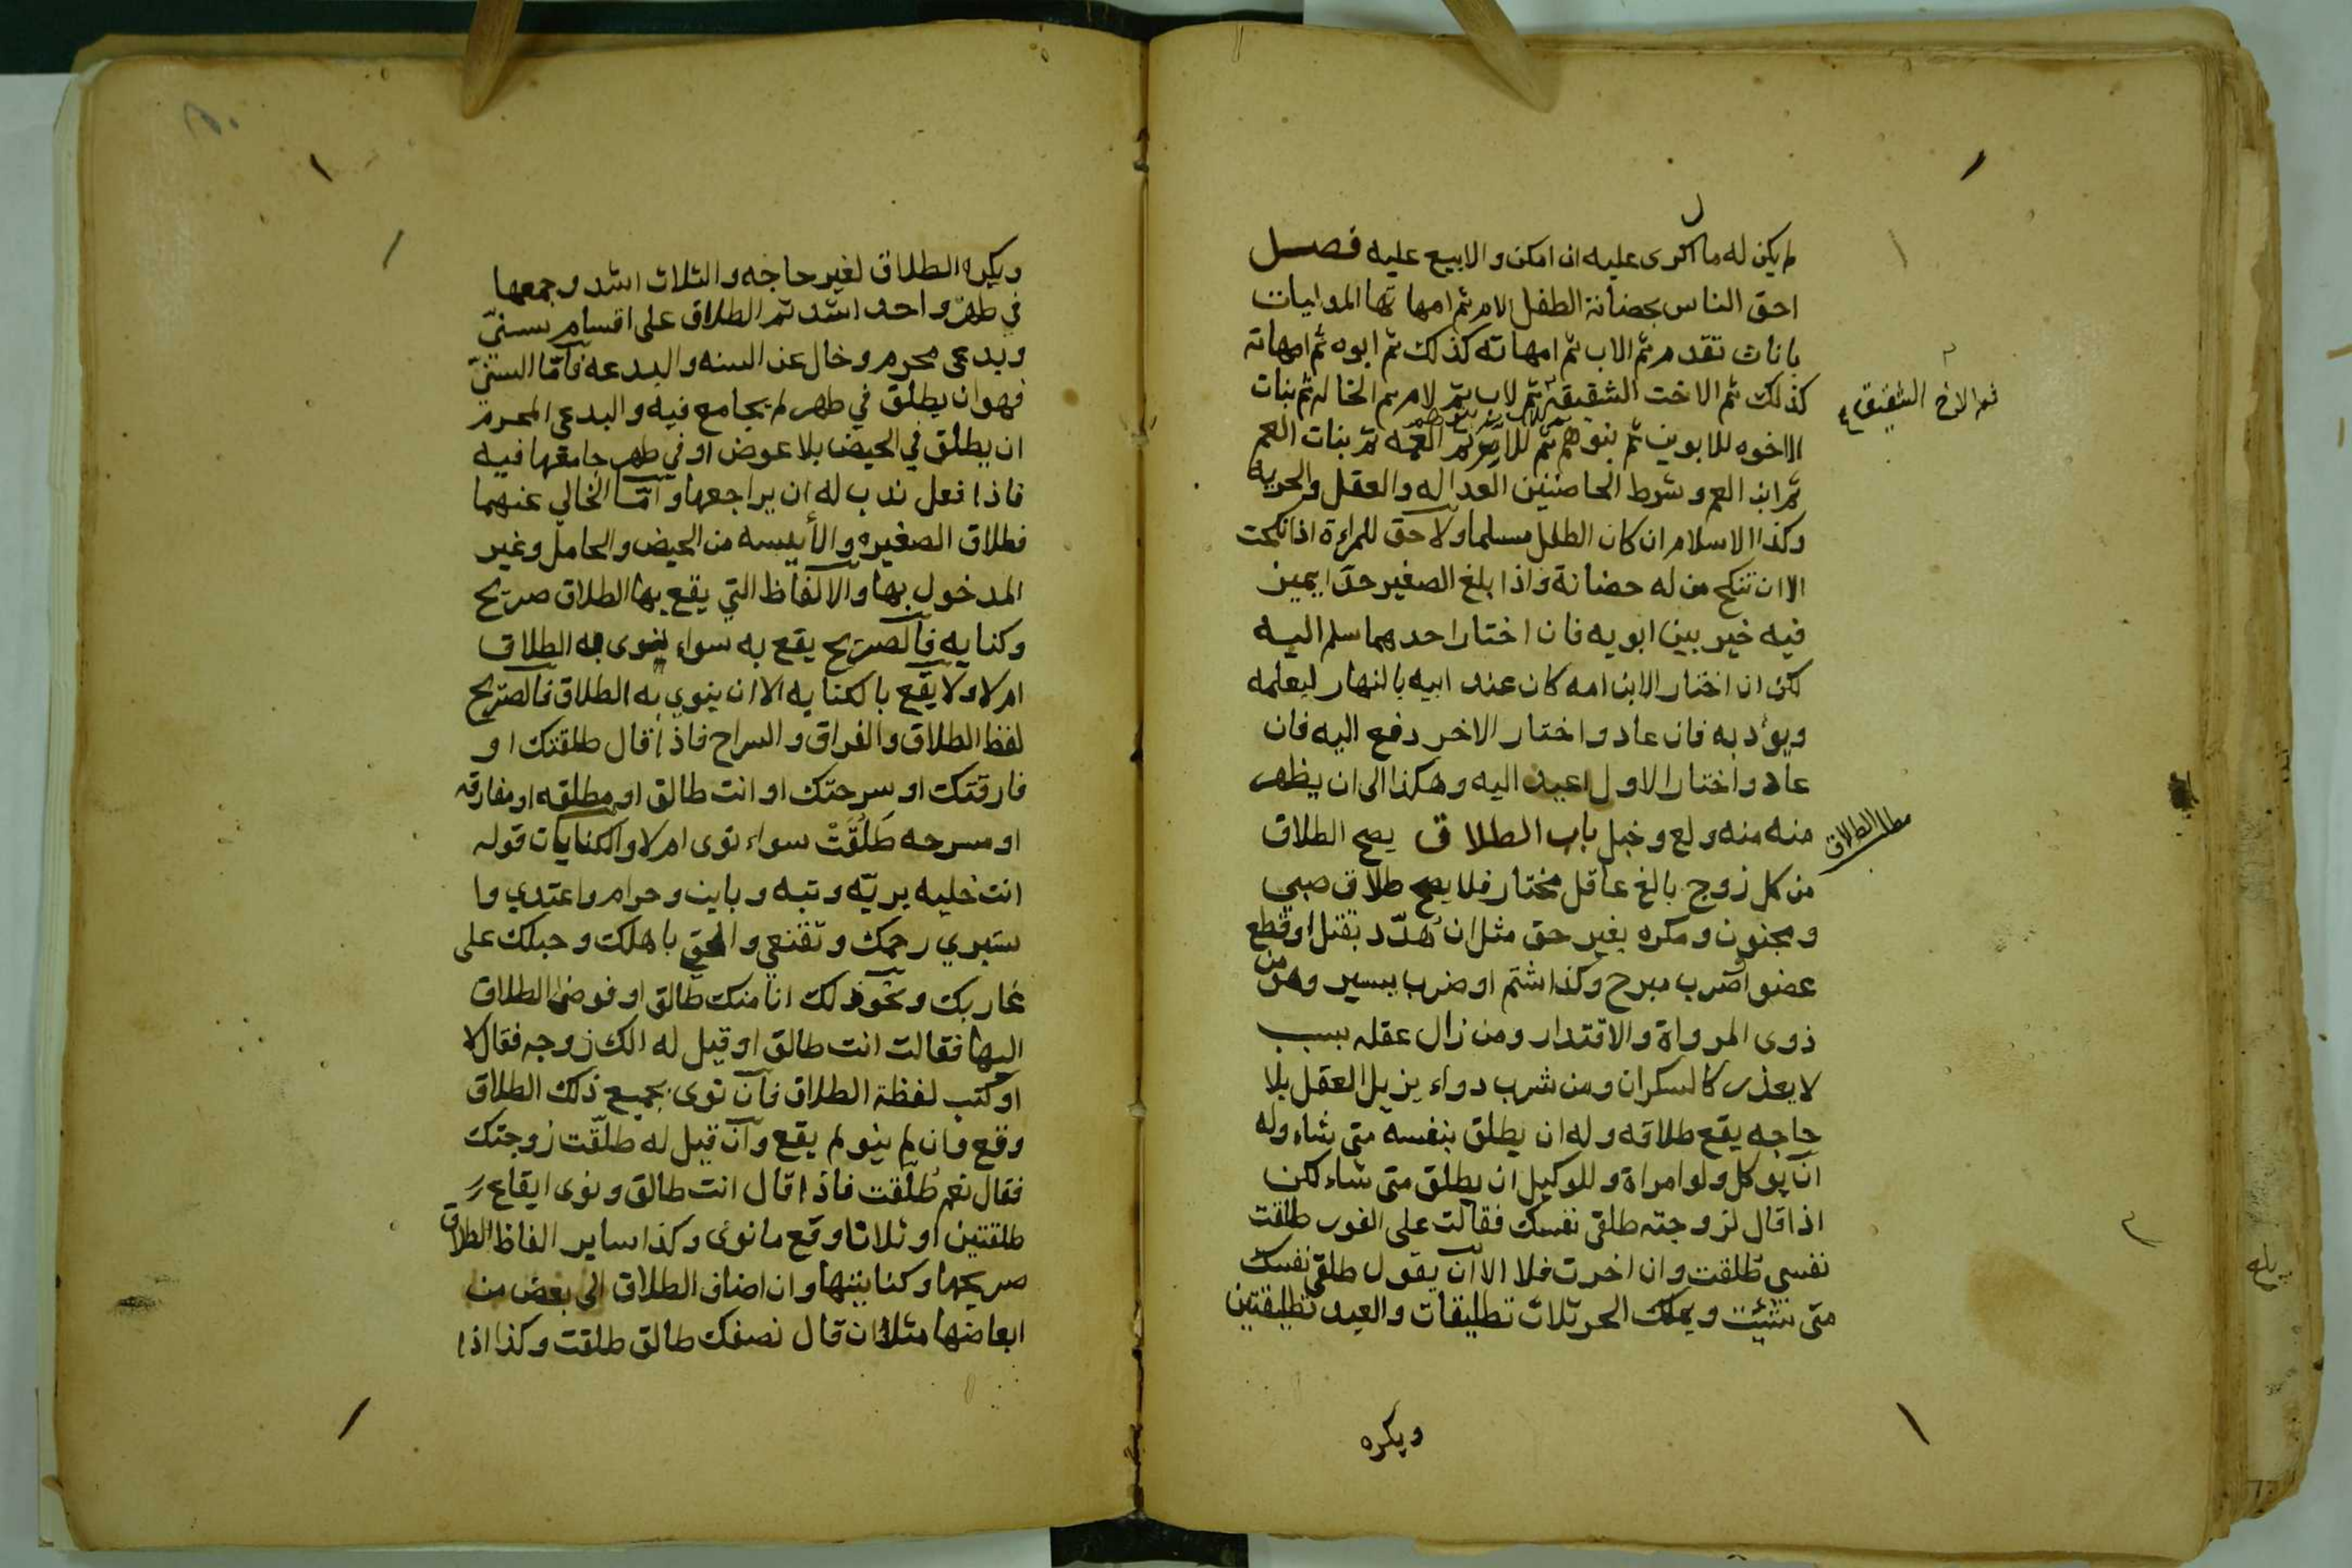 لم يكن له ما اكرى عليه ان امكن والا بيع عليه فصل
احق الناس بحضانة الطفل الام ثم امهاتها المدليات
باناث تقدم ثم الاب ثم امهاته كذلك ثم ابوه ثم امهاته
كذلك ثم الاخت الشقيقة ثم لاب ثم لام ثم الخالة ثم بنات
ثم الاخ الشقيق
الاخوه للابوين ثم بنوهم ثم للاب ثم العمه ثم بنات العم
ثم ابن العم وشرط الحاضنين العداله والعقل والحريه
وكذا الاسلام ان كان الطفل مسلما ولا حق للمراءة اذا نكحت
الا ان تنكح من له حضانة واذا بلغ الصغير حدا يميز
فيه خير بين ابويه فان اختار احدهما سلم اليه
لكن ان اختار الابن امه كان عند ابيه بالنهار ليعلمه
ويؤدبه فان عاد واختار الاخر دفع اليه فان
عاد واختار الاول اعيد اليه وهكذا الى ان يظهر
منه منه ولع وخبل باب الطلاق يصح الطلاق
مطلب الطلاق
من كل زوج بالغ عاقل مختار فلا يصح طلاق صبي
ومجنون ومكره بغير حق مثل ان هُدّد بقتل او قطع
عضو او ضرب مبرح وكذا شتم او ضرب يسير وهو من
ذوى المرواة والاقتدار ومن زال عقله بسبب
لا يعذر كالسكران ومن شرب دواء يزيل العقل بلا
حاجه يقع طلاقه وله ان يطلق بنفسه متى شاء وله
ان يوكل ولو امراة وللوكيل ان يطلق متى شاء لكن
اذا قال لزوجته طلقى نفسك فقالت على الفور طلقت
نفسي طلقت وان اخرت فلا الا ان يقول طلقى نفسك
متى شئت ويملك الحر ثلاث تطليقات والعبد تطليقتين
ويكره
ويكره الطلاق لغير حاجه والثلاث اشد وجمعها
في طهر واحد اشد ثم الطلاق على اقسام سنىّ
وبدعى محرم وخال عن السنه والبدعه فامّا السنىّ
فهو ان يطلق في طهر لم يجامع فيه والبدعى المحرم
ان يطلق في الحيض بلا عوض او في طهر جامعها فيه
فاذا فعل ندب له ان يراجعها وامّا الخالي عنهما
فطلاق الصغيره والأييسه من الحيض والحامل وغير
المدخول بها والالفاظ التي يقع بها الطلاق صريح
وكنايه فالصريح يقع به سواء نوى به الطلاق
ام لا ولا يقع بالكنايه الا ان ينوي به الطلاق فالصريح
لفظ الطلاق والفراق والسراح فاذا قال طلقتك او
فارقتك او سرحتك او انت طالق او مطلقه او مفارقه
او مسرحه طَلُقَتْ سواء نوى ام لا والكنايات قوله
انت خليه بريّه وتبه وباين وحرام واعتدي وا
ستبري رحمك وتقنعي والحقي باهلك وحبلك على
غاربك ونحو ذلك انا منك طالق او فوض الطلاق
اليها فقالت انت طالق او قيل له الك زوجه فقال لا
او كتب لفظة الطلاق فان نوى بجميع ذلك الطلاق
وقع وان لم ينو لم يقع وان قيل له طلّقت زوجتك
فقال نعم طُلّقت فاذا قال انت طالق ونوى ايقاع
طلقتين او ثلاثا وقع ما نوى وكذا ساير الفاظ الطلاق
صريحها وكنايتها وان اضاف الطلاق الى بعض من
ابعاضها مثلا ان قال نصفك طالق طلقت وكذا اذا